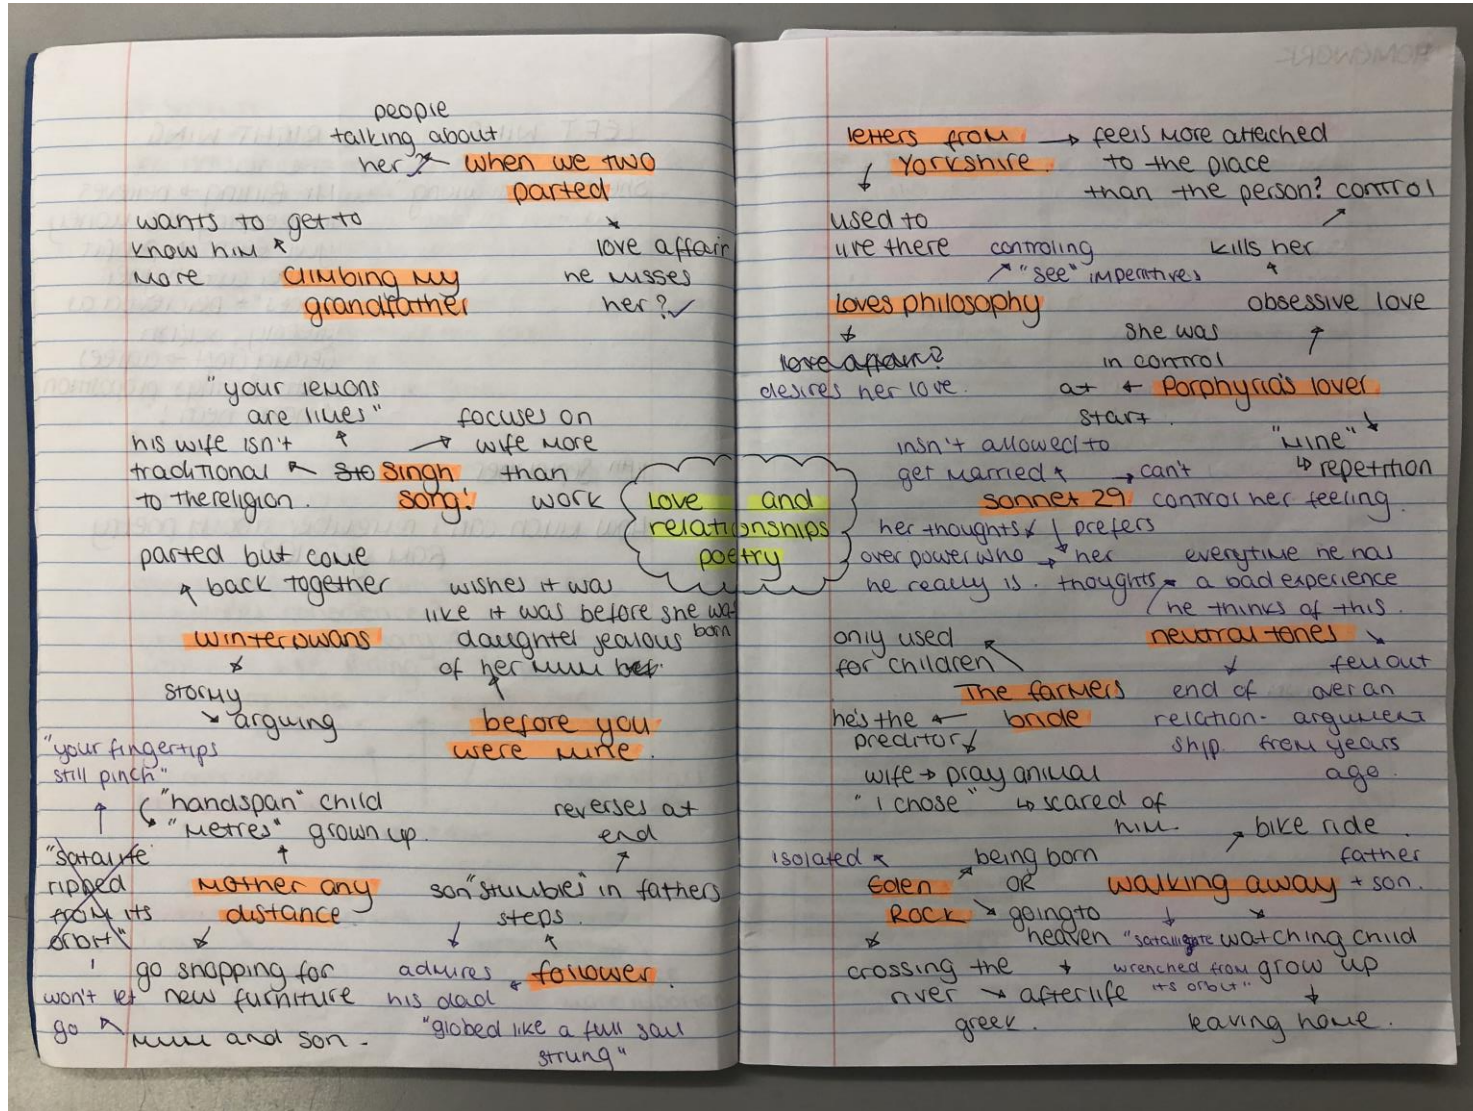 people
talking about
her?
when we two
parted
love affair
he misses
her?
wants to get to
know him
more
climbing my
grandfather
"your lemons
are limes"
focuses on
wife more
than
work
his wife isn't
traditional
to the religion.
Singh
song!
parted but come
back together
winterswans
stormy
arguing
wishes it was
like it was before she was
born
daughter jealous
of her mum
before you
were mine.
"your fingertips
still pinch"
"handspan" child
"metres" grown up.
"satalite
ripped
from its
orbit"
mother any
distance
go shopping for
new furniture
mum and son.
won't let
go
reverses at
end
son "stumbles" in fathers
steps.
admires
his dad
follower.
"globed like a full sail
strung"
Love and
relationships
poetry
HOMEWORK
letters from
Yorkshire.
feels more attached
to the place
than the person?
used to
live there
controling
"see" imperitives
loves philosophy
love affair?
desires her love.
control
kills her
obsessive love
she was
in control
at
start.
Porphyria's lover
"mine"
repetition
insn't allowed to
get married
can't
control her feeling.
sonnet 29
her thoughts
over power who
he really is.
prefers
her
thoughts
everytime he has
a bad experience
he thinks of this.
neutral tones
end of
relation-
ship.
fell out
over an
argument
from years
ago.
only used
for children
The farmers
bride
he's the
preditor
wife → pray animal
"I chose"
scared of
him.
isolated
being born
OR
going to
heaven
Eden
Rock
crossing the
river
afterlife
greek.
bike ride.
father
+ son.
walking away
wrenched from
its orbit"
watching child
grow up
leaving home.